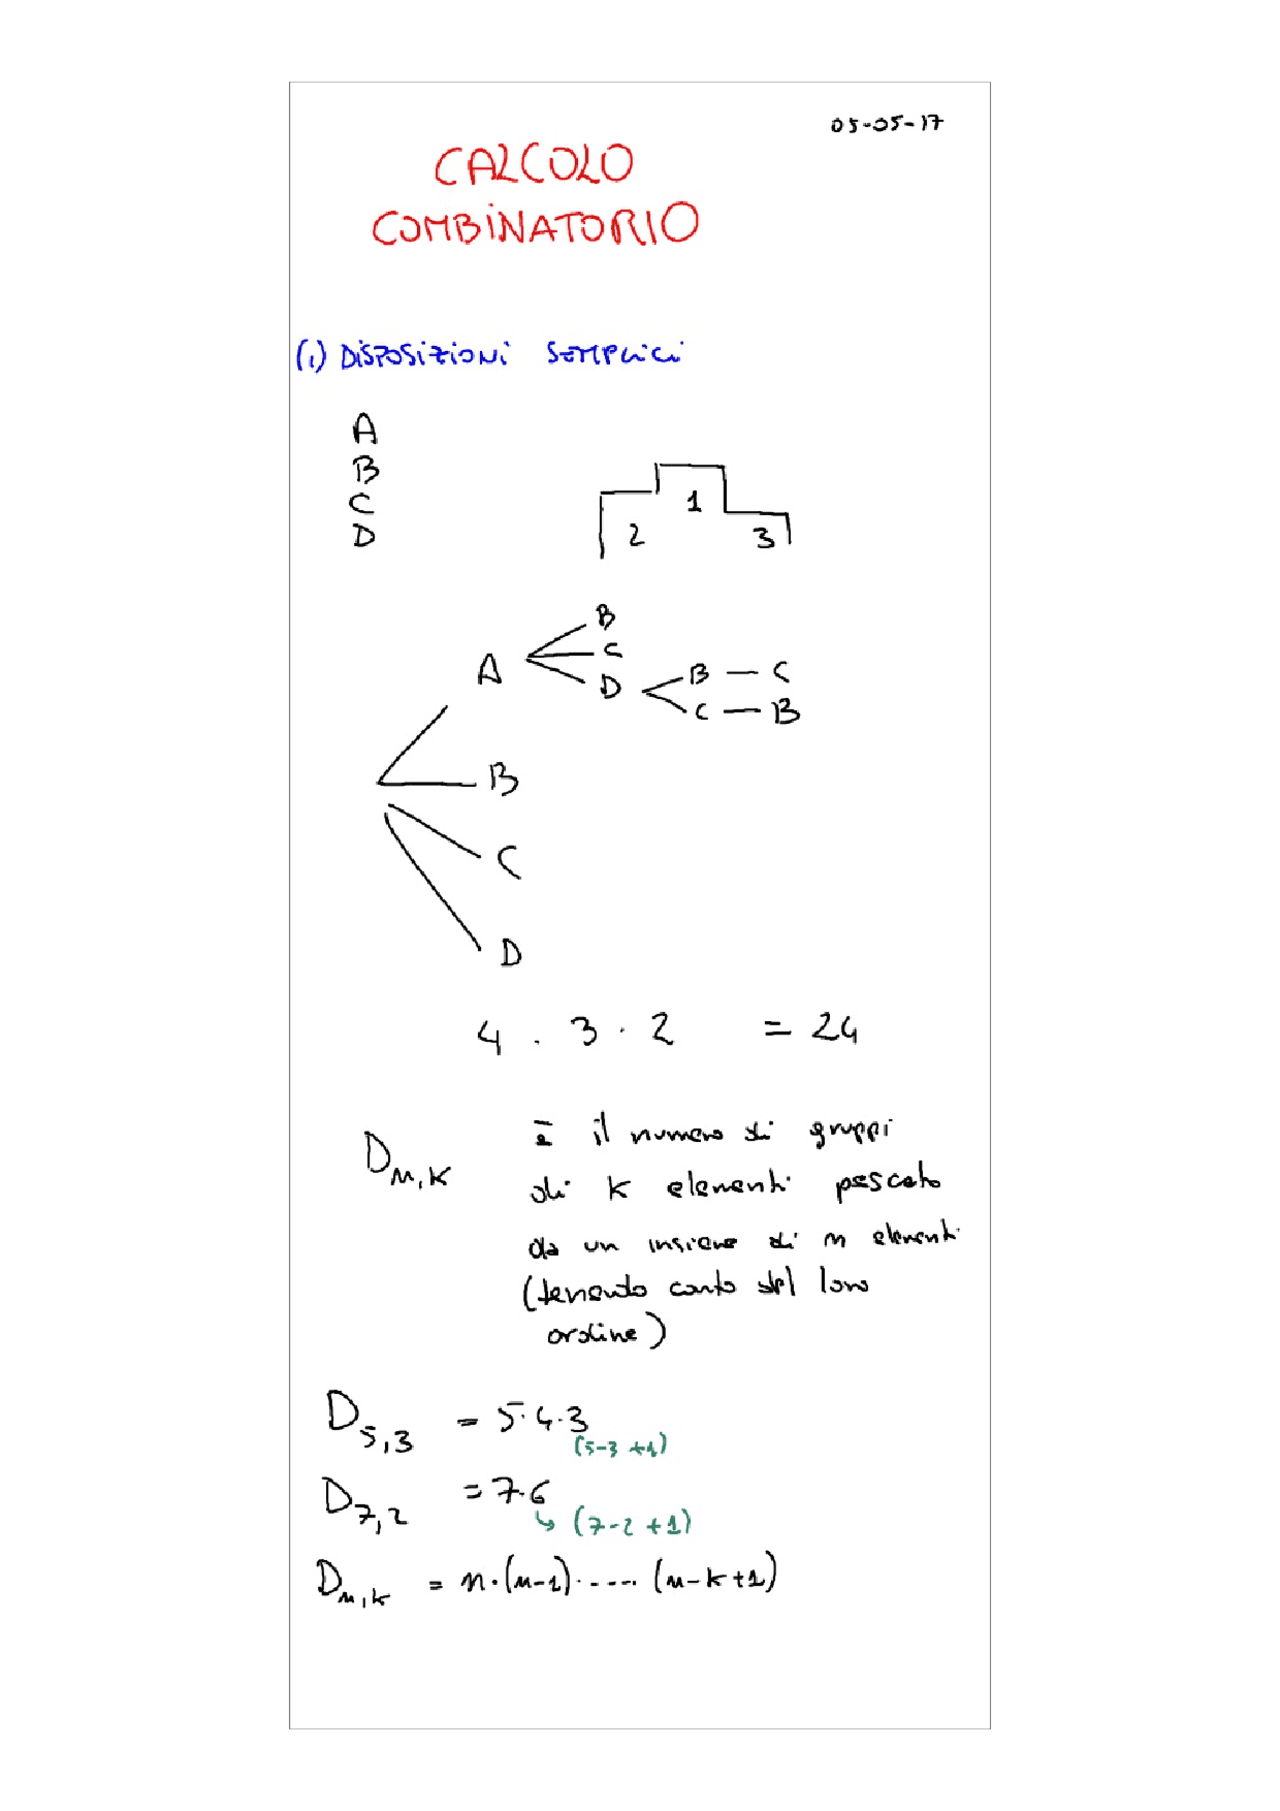 05-05-17
CALCOLO
COMBINATORIO
(1) DISPOSIZIONI SEMPLICI
A
B
C
D
1
2 3
B
A C
D B — C
C — B
B
C
D
4 . 3 . 2 = 24
D n,k è il numero di gruppi
di k elementi pescato
da un insieme di n elementi
(tenendo conto del loro
ordine)
D 5,3 = 5·4·3
(5-3+1)
D 7,2 = 7·6
↳ (7-2+1)
D n,k = n·(n-1)·----·(n-k+1)